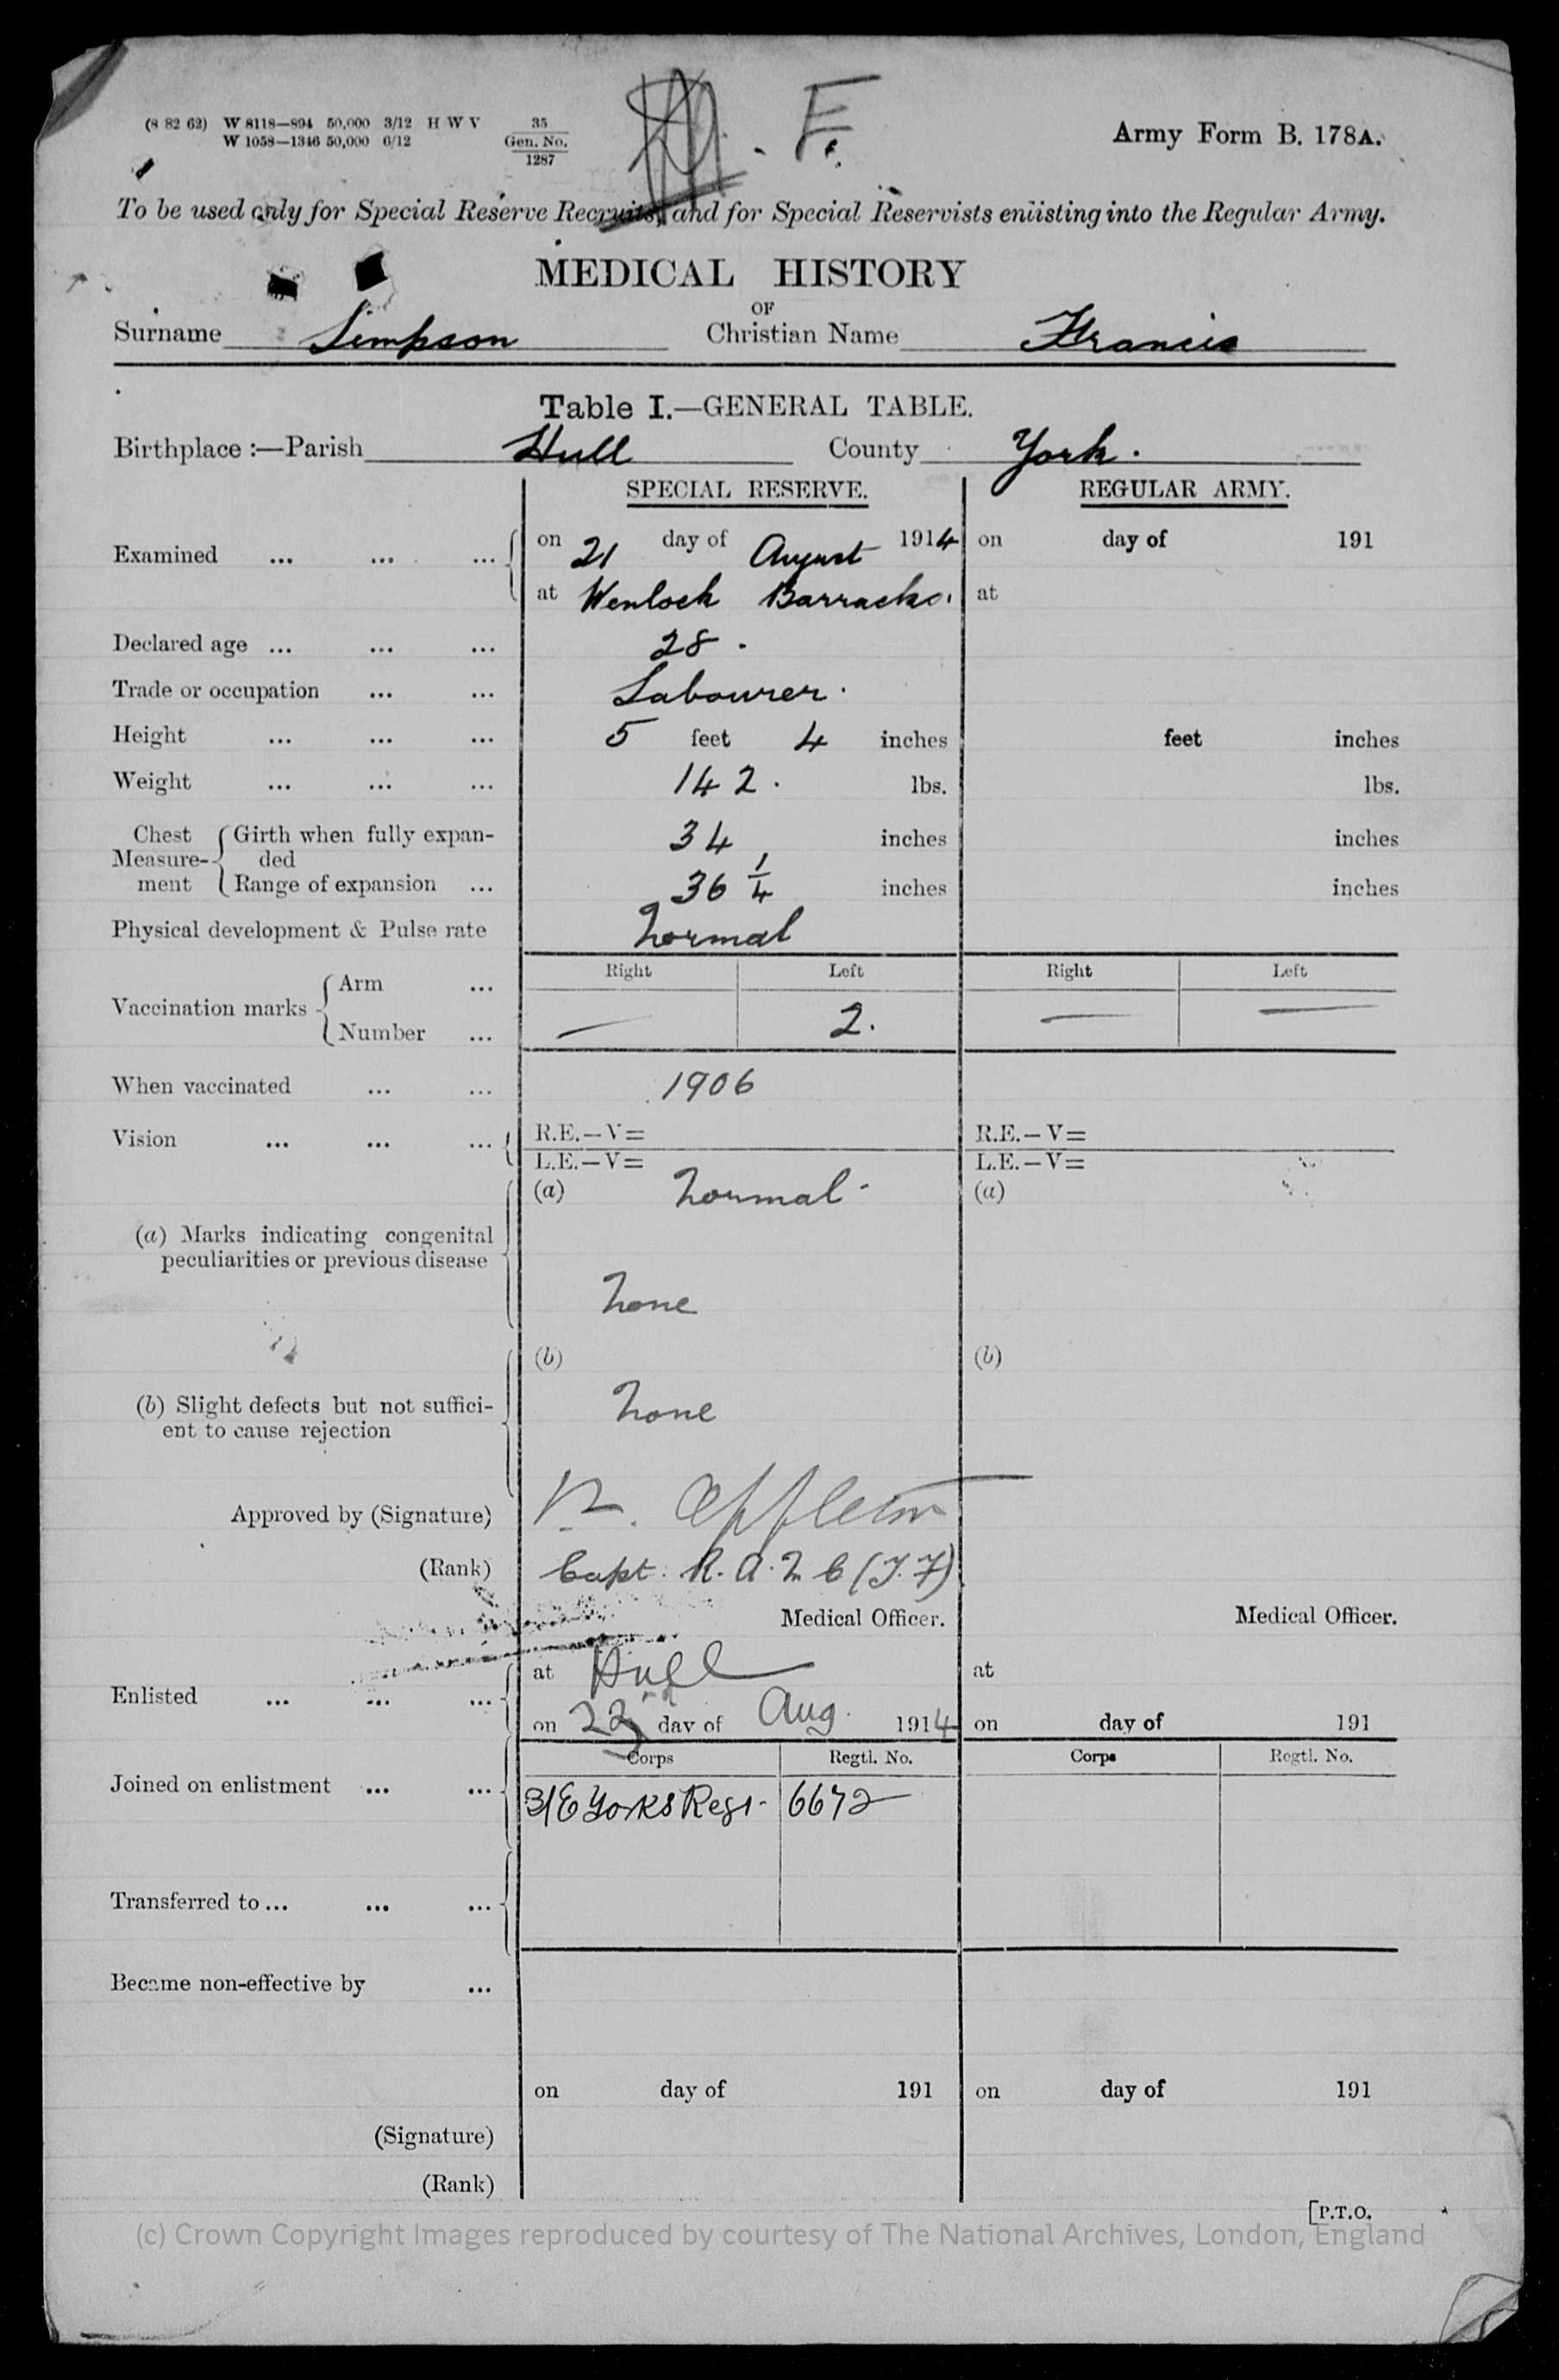 (8 82 62) W 8118—894 50,000 3/12 H W V 35
W 1058—1346 50,000 6/12 Gen. No.
1287
F.
Army Form B. 178A.
To be used only for Special Reserve Recruits, and for Special Reservists enlisting into the Regular Army.
MEDICAL HISTORY
OF
Surname Simpson Christian Name Francis
Table I.—GENERAL TABLE.
Birthplace :—Parish Hull County York.
SPECIAL RESERVE. REGULAR ARMY.
Examined ... ... ... on 21 day of August 1914 on day of 191
at Wenlock Barracks. at
Declared age ... ... ... 28.
Trade or occupation ... ... Labourer.
Height ... ... ... 5 feet 4 inches feet inches
Weight ... ... ... 142. lbs. lbs.
Chest Measurement Girth when fully expanded 34 inches inches
Range of expansion ... 36 1/4 inches inches
Physical development & Pulse rate Normal
Right Left Right Left
Vaccination marks Arm ...
Number ... — 2. — —
When vaccinated ... ... 1906
Vision ... ... ... R.E.—V= R.E.—V=
L.E.—V= L.E.—V=
(a) Normal (a)
(a) Marks indicating congenital
peculiarities or previous disease
None
(b) (b)
(b) Slight defects but not suffici-
ent to cause rejection
None
Approved by (Signature) Appleton
(Rank) Capt. R.A.M.C (T.F)
Medical Officer. Medical Officer.
Enlisted ... ... ... at Hull at
on 22 day of Aug. 1914 on day of 191
Corps Regtl. No. Corps Regtl. No.
Joined on enlistment ... ... 3/E Yorks Regt. 6672
Transferred to ... ... ...
Became non-effective by ...
on day of 191 on day of 191
(Signature)
(Rank)
[P.T.O.
(c) Crown Copyright Images reproduced by courtesy of The National Archives, London, England